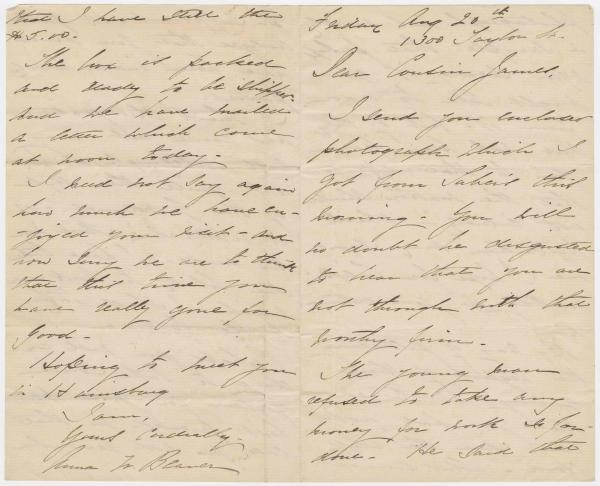 Friday Aug 20th
1300 Taylor St.
Dear Cousin James,
I send you enclosed
photograph which I
got from Taber's this
morning - You will
no doubt be disgusted
to hear that you are
not through with that
worthy firm -
The young man
refused to take any
money for work so far
done - He said that
that I have still the
$5.00 -
The box is packed
and ready to be shipped
and we have mailed
a letter which came
at noon today -
I need not say again
how much we have en-
-joyed your visit - and
how sorry we are to think
that this time you
have really gone for
good -
Hoping to meet you
in
I am,
Yours Cordially -
Anna W. Beaver